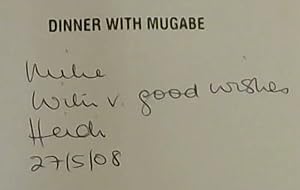 DINNER WITH MUGABE
Mike
With v. good wishes
Heidi
27/5/08